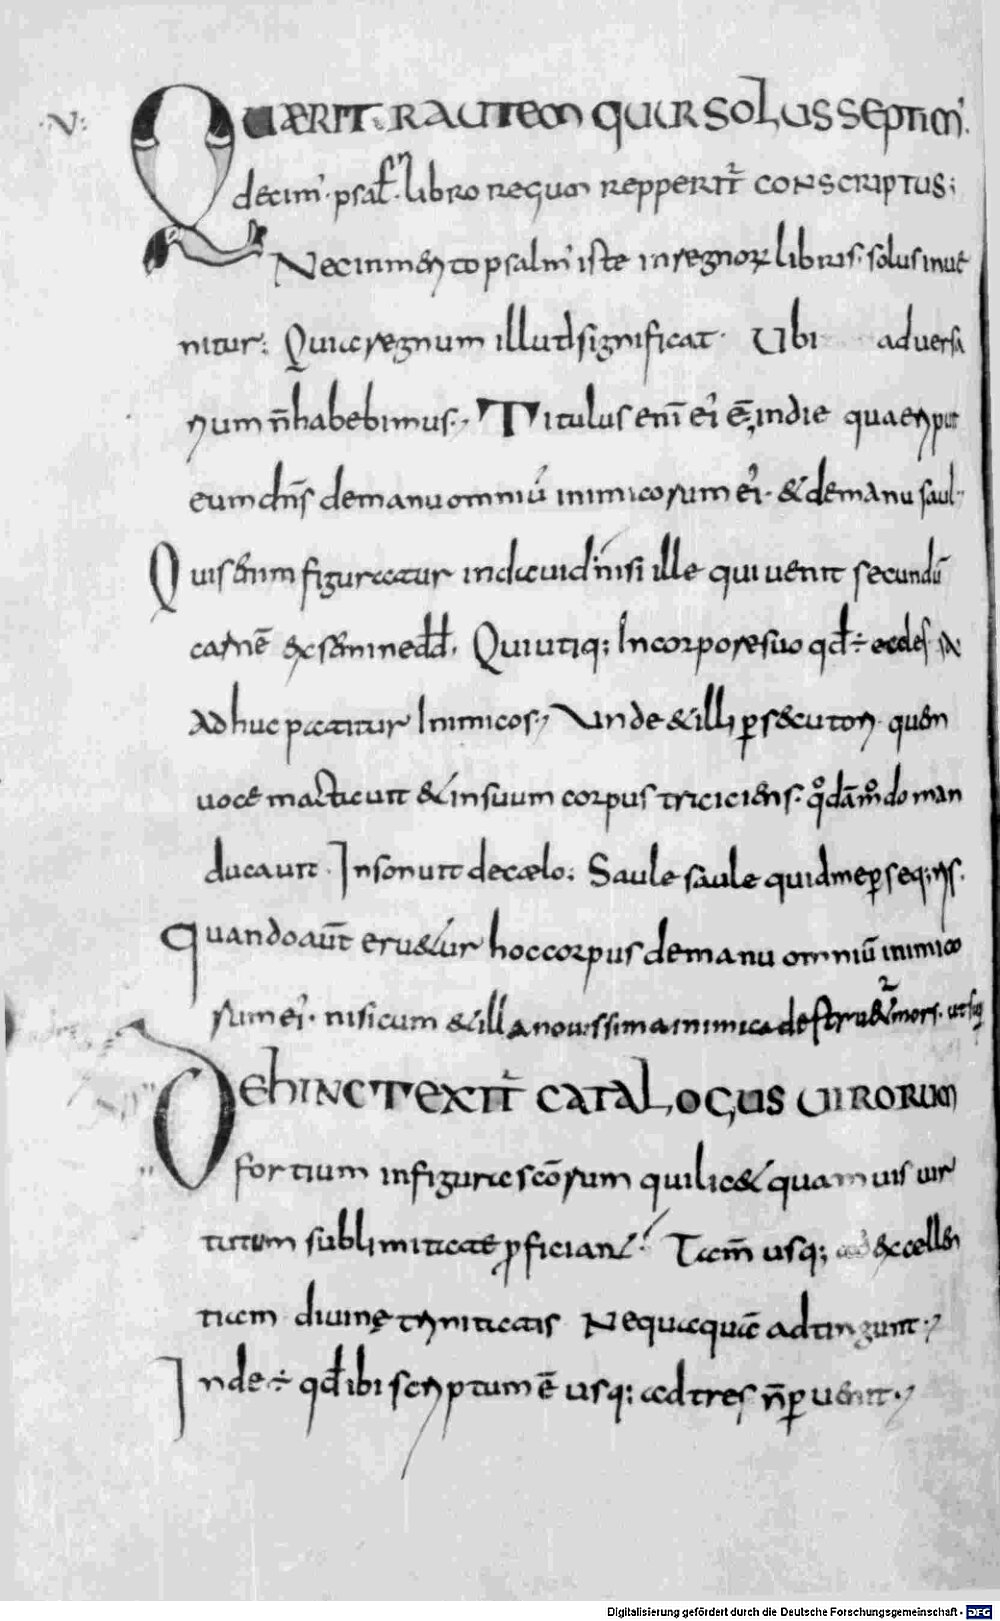 ·V:
QUÆRIT̃R AUTEM QUUR SOLUS SEPTIM'·
decim'· psał·m̃ libro regum repperit̃ CONSCRIPTUS;
Nec inmerito psalm' iste in regnorꝝ libris· solus inue
nitur; Quia regnum illud significat· Ubi adversa
rium ñ habebimus· Titulus enĩ ei' ẽ, in die qua eripuit
eum dñs de manu omniũ inimicorum ei'· & de manu saul·
Quis enim figuratur in dauid nisi ille qui uenit secundũ
carnẽ ex semine dđ· Qui utiq; In corpore suo qđ ÷ eccłes
Adhuc patitur Inimicos· Unde & illi ꝑsecutori quem
uoce mactauit & in suum corpus traiciens· q̊dãm̊do man
ducauit· Insonuit de cælo; Saule saule quid me ꝑseq;ris·
Quando aũt eruetur hoc corpus de manu omniũ inimico
rum ei'· nisi cum & illa nouissima inimica destruet̃ mors·
DEHINC TEXIT̃ CATALOGUS UIRORUM
fortium in figura scõrum qui licet quamuis uir
tutum sublimitate ꝓficiant; Tam̃ usq; ad excellen
tiam diuinę trinitatis Nequaquã adtingunt·
Inde ÷ qđ ibi scriptum ẽ usq; ad tres ñ ꝑuenit·
Digitalisierung gefördert durch die Deutsche Forschungsgemeinschaft - DFG